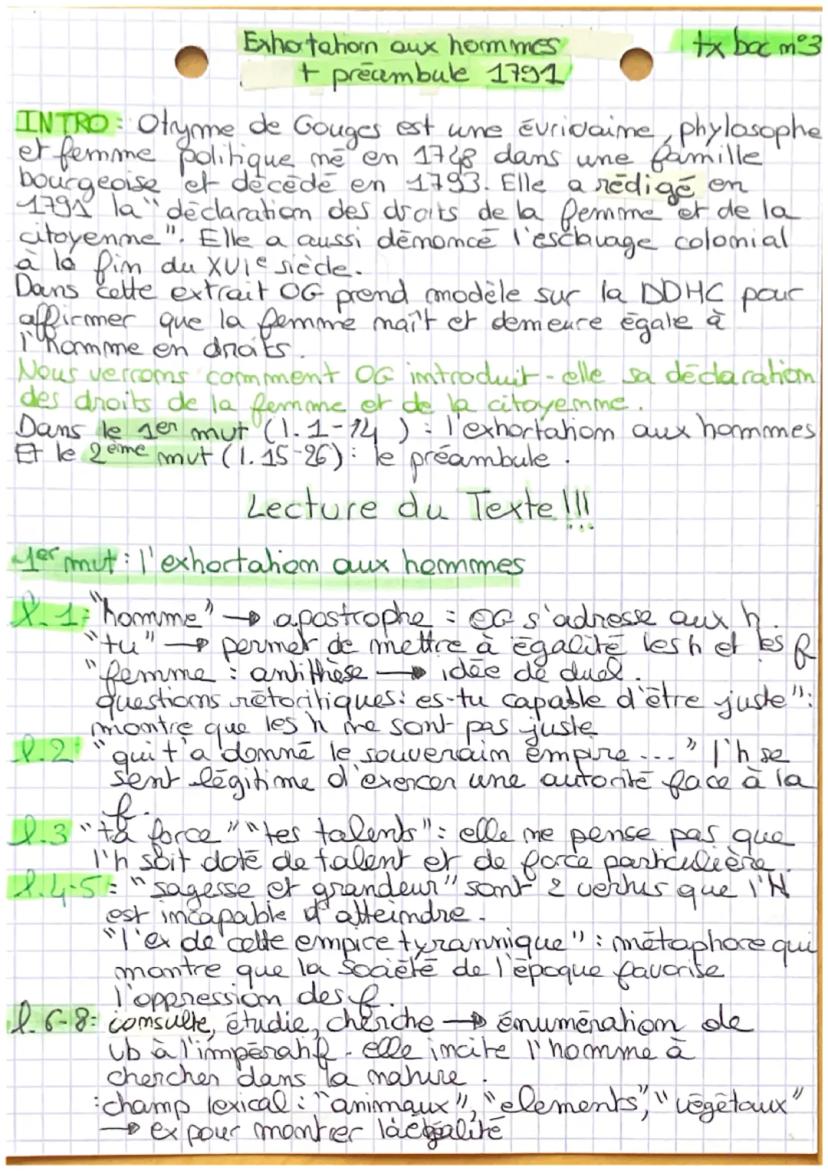 Exhortation aux hommes
+ préambule 1791
tx bac n°3
INTRO: Olymme de Gouges est une évrivaime, phylosophe
et femme politique né en 1748 dans une famille
bourgeoise et décédé en 1793. Elle a rédigé en
1791 la "déclaration des droits de la femme et de la
citoyenne". Elle a aussi dénoncé l'esclavage colonial
à la fin du XVIe siècle.
Dans cette extrait OG prend modèle sur la DDHC pour
affirmer que la femme naît et demeure égale à
l'homme en droits.
Nous verrons comment OG introduit-elle sa déclaration
des droits de la femme et de la citoyenne.
Dans le 1er mvt (l.1-14) : l'exhortation aux hommes
Et le 2ème mvt (l.15-26): le préambule.
Lecture du Texte!!!
1er mvt : l'exhortation aux hommes
l.1: "homme" → apostrophe : OG s'adresse aux h.
"tu" → permet de mettre à égalité les h et les f
"femme : antithèse → idée de duel.
questions rétoritiques: es-tu capable d'être juste":
montre que les h ne sont pas juste
l.2 "qui t'a donné le souverain empire ..." l'h se
sent légitime d'exercer une autorité face à la
f.
l.3 "ta force" "tes talents": elle ne pense pas que
l'h soit doté de talent et de force particulière.
l.4-5 : "sagesse et grandeur" sont 2 vertus que l'H
est incapable d'atteindre.
"l'ex de cette empire tyrannique" : métaphore qui
montre que la société de l'époque favorise
l'oppression des f.
l.6-8: consulte, étudie, cherche → énumération de
vb à l'impératif - elle incite l'homme à
chercher dans la nature.
: champ lexical : "animaux", "elements", "végétaux"
→ ex pour montrer l'égalité